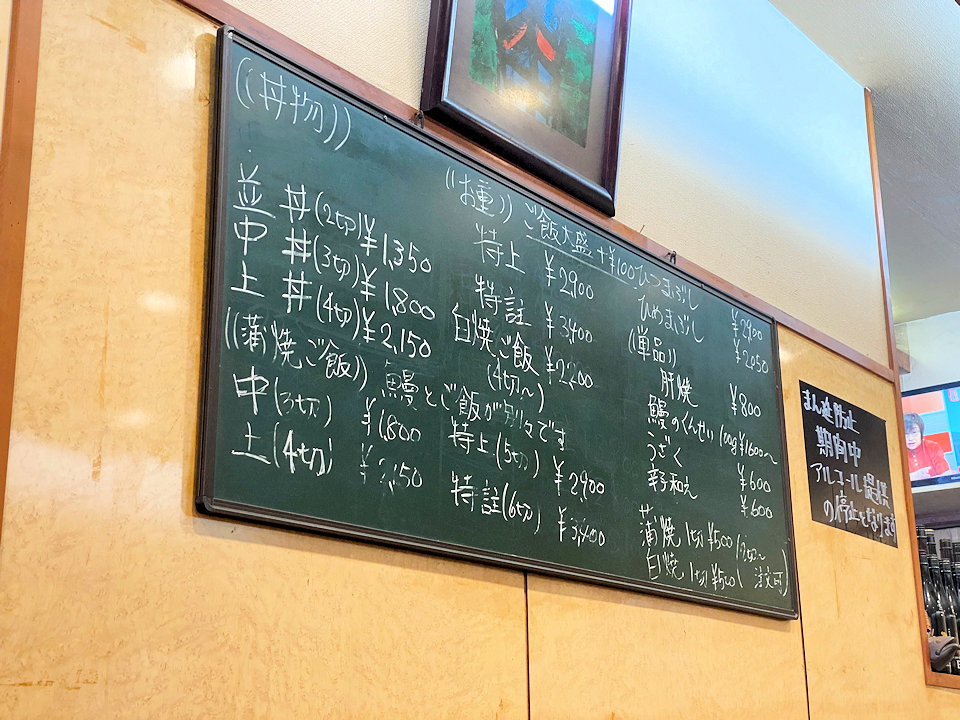 ((丼物))
並 丼(2切)¥1,350
中 丼(3切)¥1,800
上 丼(4切)¥2,150
((蒲焼ご飯)) 鰻とご飯が別々です
中(3切) ¥1,800
上(4切) ¥2,150
((お重)) ご飯大盛 +¥100
特上 ¥2,900
特註 ¥3,400
白焼ご飯 ¥2,200
(4切〜)
特上(5切) ¥2,900
特註(6切) ¥3,400
ひつまぶし ¥2,900
ひめまぶし ¥2,050
((単品))
肝焼 ¥800
鰻のくんせい 100g ¥1600〜
うざく ¥600
辛子和え ¥600
蒲焼 1切 ¥500
白焼 1切 ¥500 注文可
まん延防止
期間中
アルコール提供
の停止となります